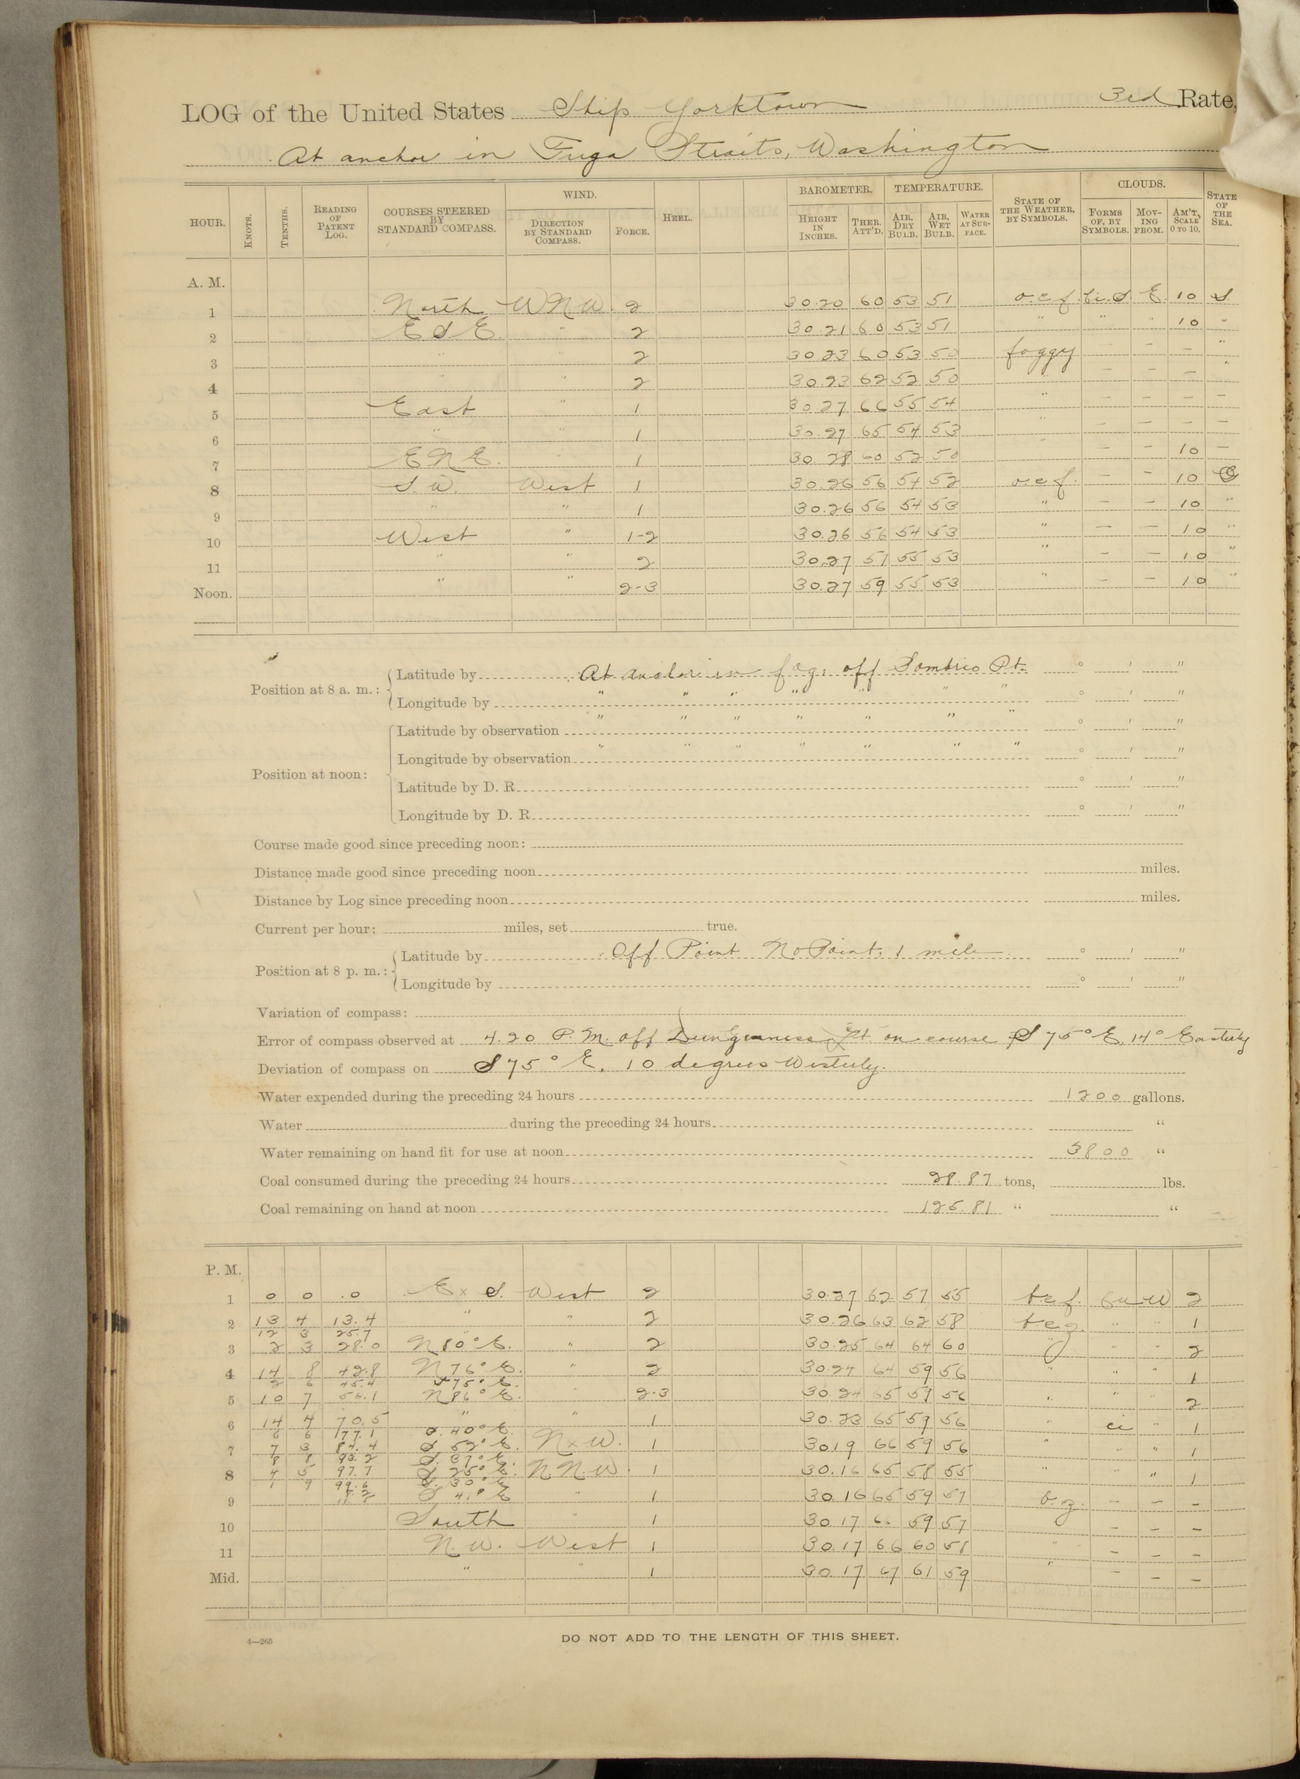 LOG of the United States Ship Yorktown 3rd Rate,
At anchor in Fuga Straits, Washington
HOUR. KNOTS. TENTHS. READING OF PATENT LOG. COURSES STEERED BY STANDARD COMPASS. WIND. DIRECTION BY STANDARD COMPASS. FORCE. HEEL. BAROMETER. HEIGHT IN INCHES. THER. ATT'D. TEMPERATURE. AIR, DRY BULB. AIR, WET BULB. WATER AT SURFACE. STATE OF THE WEATHER, BY SYMBOLS. CLOUDS. FORMS OF, BY SYMBOLS. MOVING FROM. AM'T, SCALE 0 TO 10. STATE OF THE SEA.
A. M.
1 North WNW 2 30.20 60 53 51 o.c.f. E 10 S
2 ESE " 2 30.21 60 53 51 " " " 10 "
3 " " 2 30.23 60 53 50 foggy — — — "
4 " 2 30.23 62 52 50 — — — "
5 East " 1 30.27 66 55 54 " — — — —
6 " " 1 30.27 65 54 53 " — — — —
7 ENE. " 1 30.28 60 52 50 — — 10 —
8 S.W. West 1 30.26 56 54 52 o.c.f. — — 10
9 " " 1 30.26 56 54 53 " — — 10 "
10 West " 1-2 30.26 56 54 53 " — — 10 "
11 " " 2 30.27 57 55 53 " — — 10 "
Noon. " " 2-3 30.27 59 55 53 " — — 10 "
Position at 8 a. m.: Latitude by At anchor in fog, off Sombrio Pt. ° ' "
Longitude by " " " " " " " ° ' "
Position at noon: Latitude by observation " " " " " " " ° ' "
Longitude by observation " " " " " " " ° ' "
Latitude by D. R. ° ' "
Longitude by D. R. ° ' "
Course made good since preceding noon:
Distance made good since preceding noon miles.
Distance by Log since preceding noon miles.
Current per hour: miles, set true.
Position at 8 p. m.: Latitude by Off Point No Point, 1 mile ° ' "
Longitude by ° ' "
Variation of compass:
Error of compass observed at 4.20 P.M. off Dungeness Pt. on course S 75° E, 14° Easterly
Deviation of compass on S 75° E. 10 degrees Westerly.
Water expended during the preceding 24 hours 1200 gallons.
Water during the preceding 24 hours "
Water remaining on hand fit for use at noon 3800 "
Coal consumed during the preceding 24 hours 28.87 tons, lbs.
Coal remaining on hand at noon 125.81 " "
P. M.
1 0 0 .0 E x S. West 2 30.27 62 57 55 b.c.f. Cu W 2
2 13 4 13.4 " " 2 30.26 63 62 58 b.c.z. " " 1
12 3 25.7
3 2 3 28.0 N 80° E. " 2 30.25 64 64 60 " " " 2
4 14 8 42.8 N 76° E. " 2 30.24 64 59 56 " " " 1
2 6 45.4 S 75° E.
5 10 7 56.1 N 86° E. " 2-3 30.24 65 59 56 " " " 2
6 14 4 70.5 " " 1 30.23 65 59 56 " ci " 1
6 6 77.1 S. 40° E.
7 7 3 84.4 S. 52° E. N x W. 1 30.19 66 59 56 " " " 1
8 8 93.2 S. 37° E.
8 4 5 97.7 S 25° E. NNW. 1 30.16 65 58 55 " " " 1
1 9 99.6 S. 30° E.
9 S 41° E " 1 30.16 65 59 57 b.z. — — —
10 South " 1 30.17 59 57 — — —
11 N.W. West 1 30.17 66 60 58 " — — —
Mid. " " 1 30.17 67 61 59 " — — —
4—265
DO NOT ADD TO THE LENGTH OF THIS SHEET.